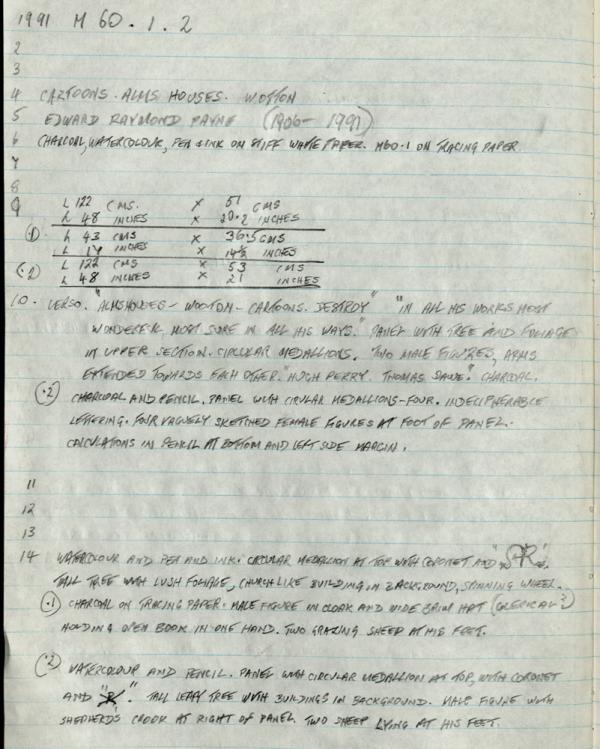 1991 M 60.1.2
2
3
4 CARTOONS. ALMS HOUSES. WOTTON
5 EDWARD RAYMOND PAYNE (1906-1991)
6 CHARCOAL, WATERCOLOUR, PEN & INK ON STIFF WHITE PAPER. M60.1 ON TRACING PAPER
7
8
9 L 122 CMS. X 51 CMS
L 48 INCHES X 20.2 INCHES
(.1) L 43 CMS X 36.5 CMS
L 17 INCHES X 14½ INCHES
(.2) L 122 CMS X 53 CMS
L 48 INCHES X 21 INCHES
10. VERSO. "ALMSHOUSES - WOOTON - CARTOONS. DESTROY" "IN ALL HIS WORKS MOST
WONDERFUL MOST SURE IN ALL HIS WAYS." PANEL WITH TREE AND FOLIAGE
IN UPPER SECTION. CIRCULAR MEDALLIONS. TWO MALE FIGURES, ARMS
EXTENDED TOWARDS EACH OTHER. "HUGH PERRY. THOMAS". CHARCOAL.
(.2) CHARCOAL AND PENCIL. PANEL WITH CIRULAR MEDALLIONS - FOUR. INDECIPHERABLE
LETTERING. FOUR VAGUELY SKETCHED FEMALE FIGURES AT FOOT OF PANEL.
CALCULATIONS IN PENCIL AT BOTTOM AND LEFT SIDE MARGIN.
11
12
13
14 WATERCOLOUR AND PEN AND INK. CIRCULAR MEDALLION AT TOP WITH CORONET AND
TALL TREE WITH LUSH FOLIAGE, CHURCHLIKE BUILDING IN BACKGROUND, SPINNING WHEEL.
(.1) CHARCOAL ON TRACING PAPER. MALE FIGURE IN CLOAK AND WIDE BRIM HAT (CLERICAL?)
HOLDING OPEN BOOK IN ONE HAND. TWO GRAZING SHEEP AT HIS FEET.
(.2) WATERCOLOUR AND PENCIL. PANEL WITH CIRCULAR MEDALLION AT TOP, WITH CORONET
AND "R". TALL LEAFY TREE WITH BUILDINGS IN BACKGROUND. MALE FIGURE WITH
SHEPHERDS CROOK AT RIGHT OF PANEL. TWO SHEEP LYING AT HIS FEET.